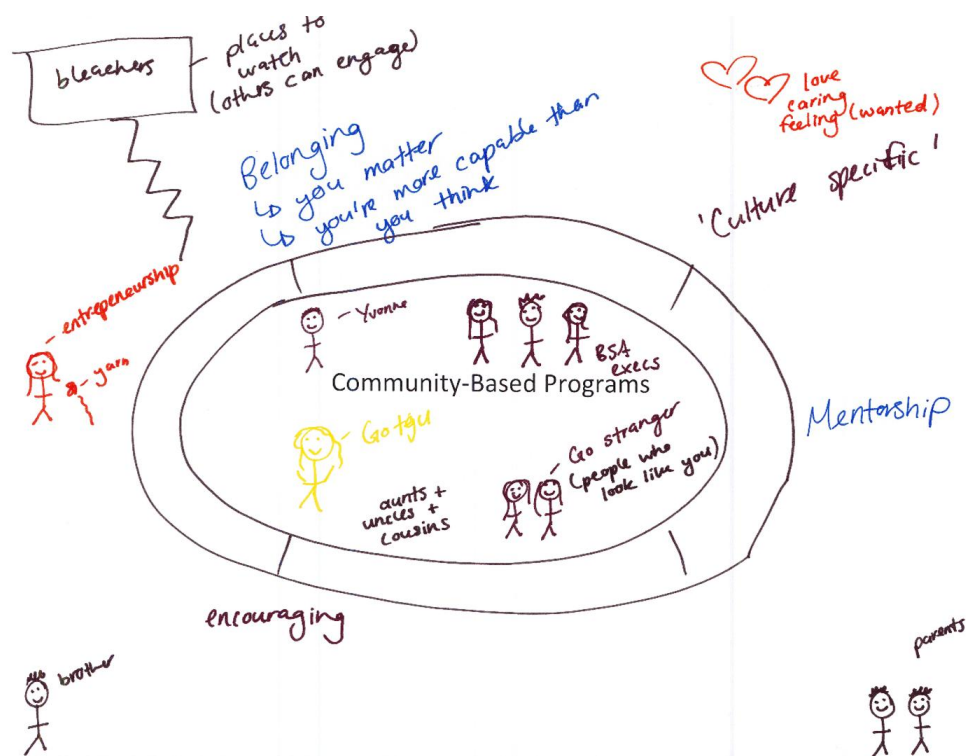 bleachers
- places to
watch
(others can engage)
love
caring
feeling (wanted)
'Culture specific'
Belonging
↳ you matter
↳ you're more capable than
you think
- entrepeneurship
- yarn
- Yvonne
BSA
execs
Community-Based Programs
Mentorship
- Go stranger
(people who
look like you)
aunts +
uncles +
cousins
encouraging
brother
parents